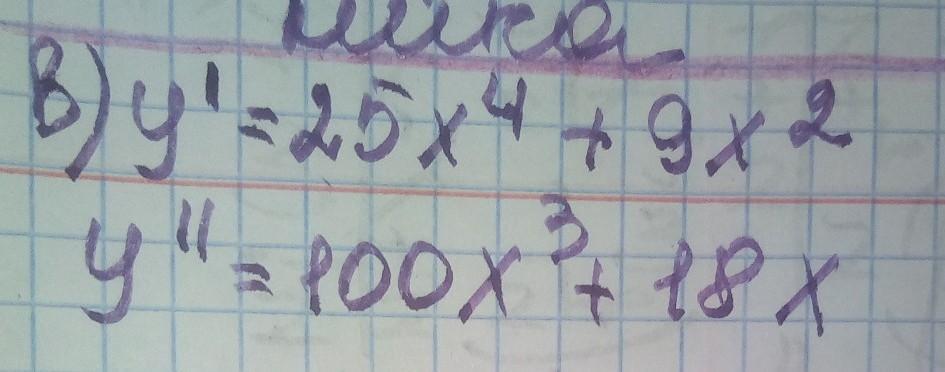 в) y' = 25x⁴ + 9x²
y'' = 100x³ + 18x